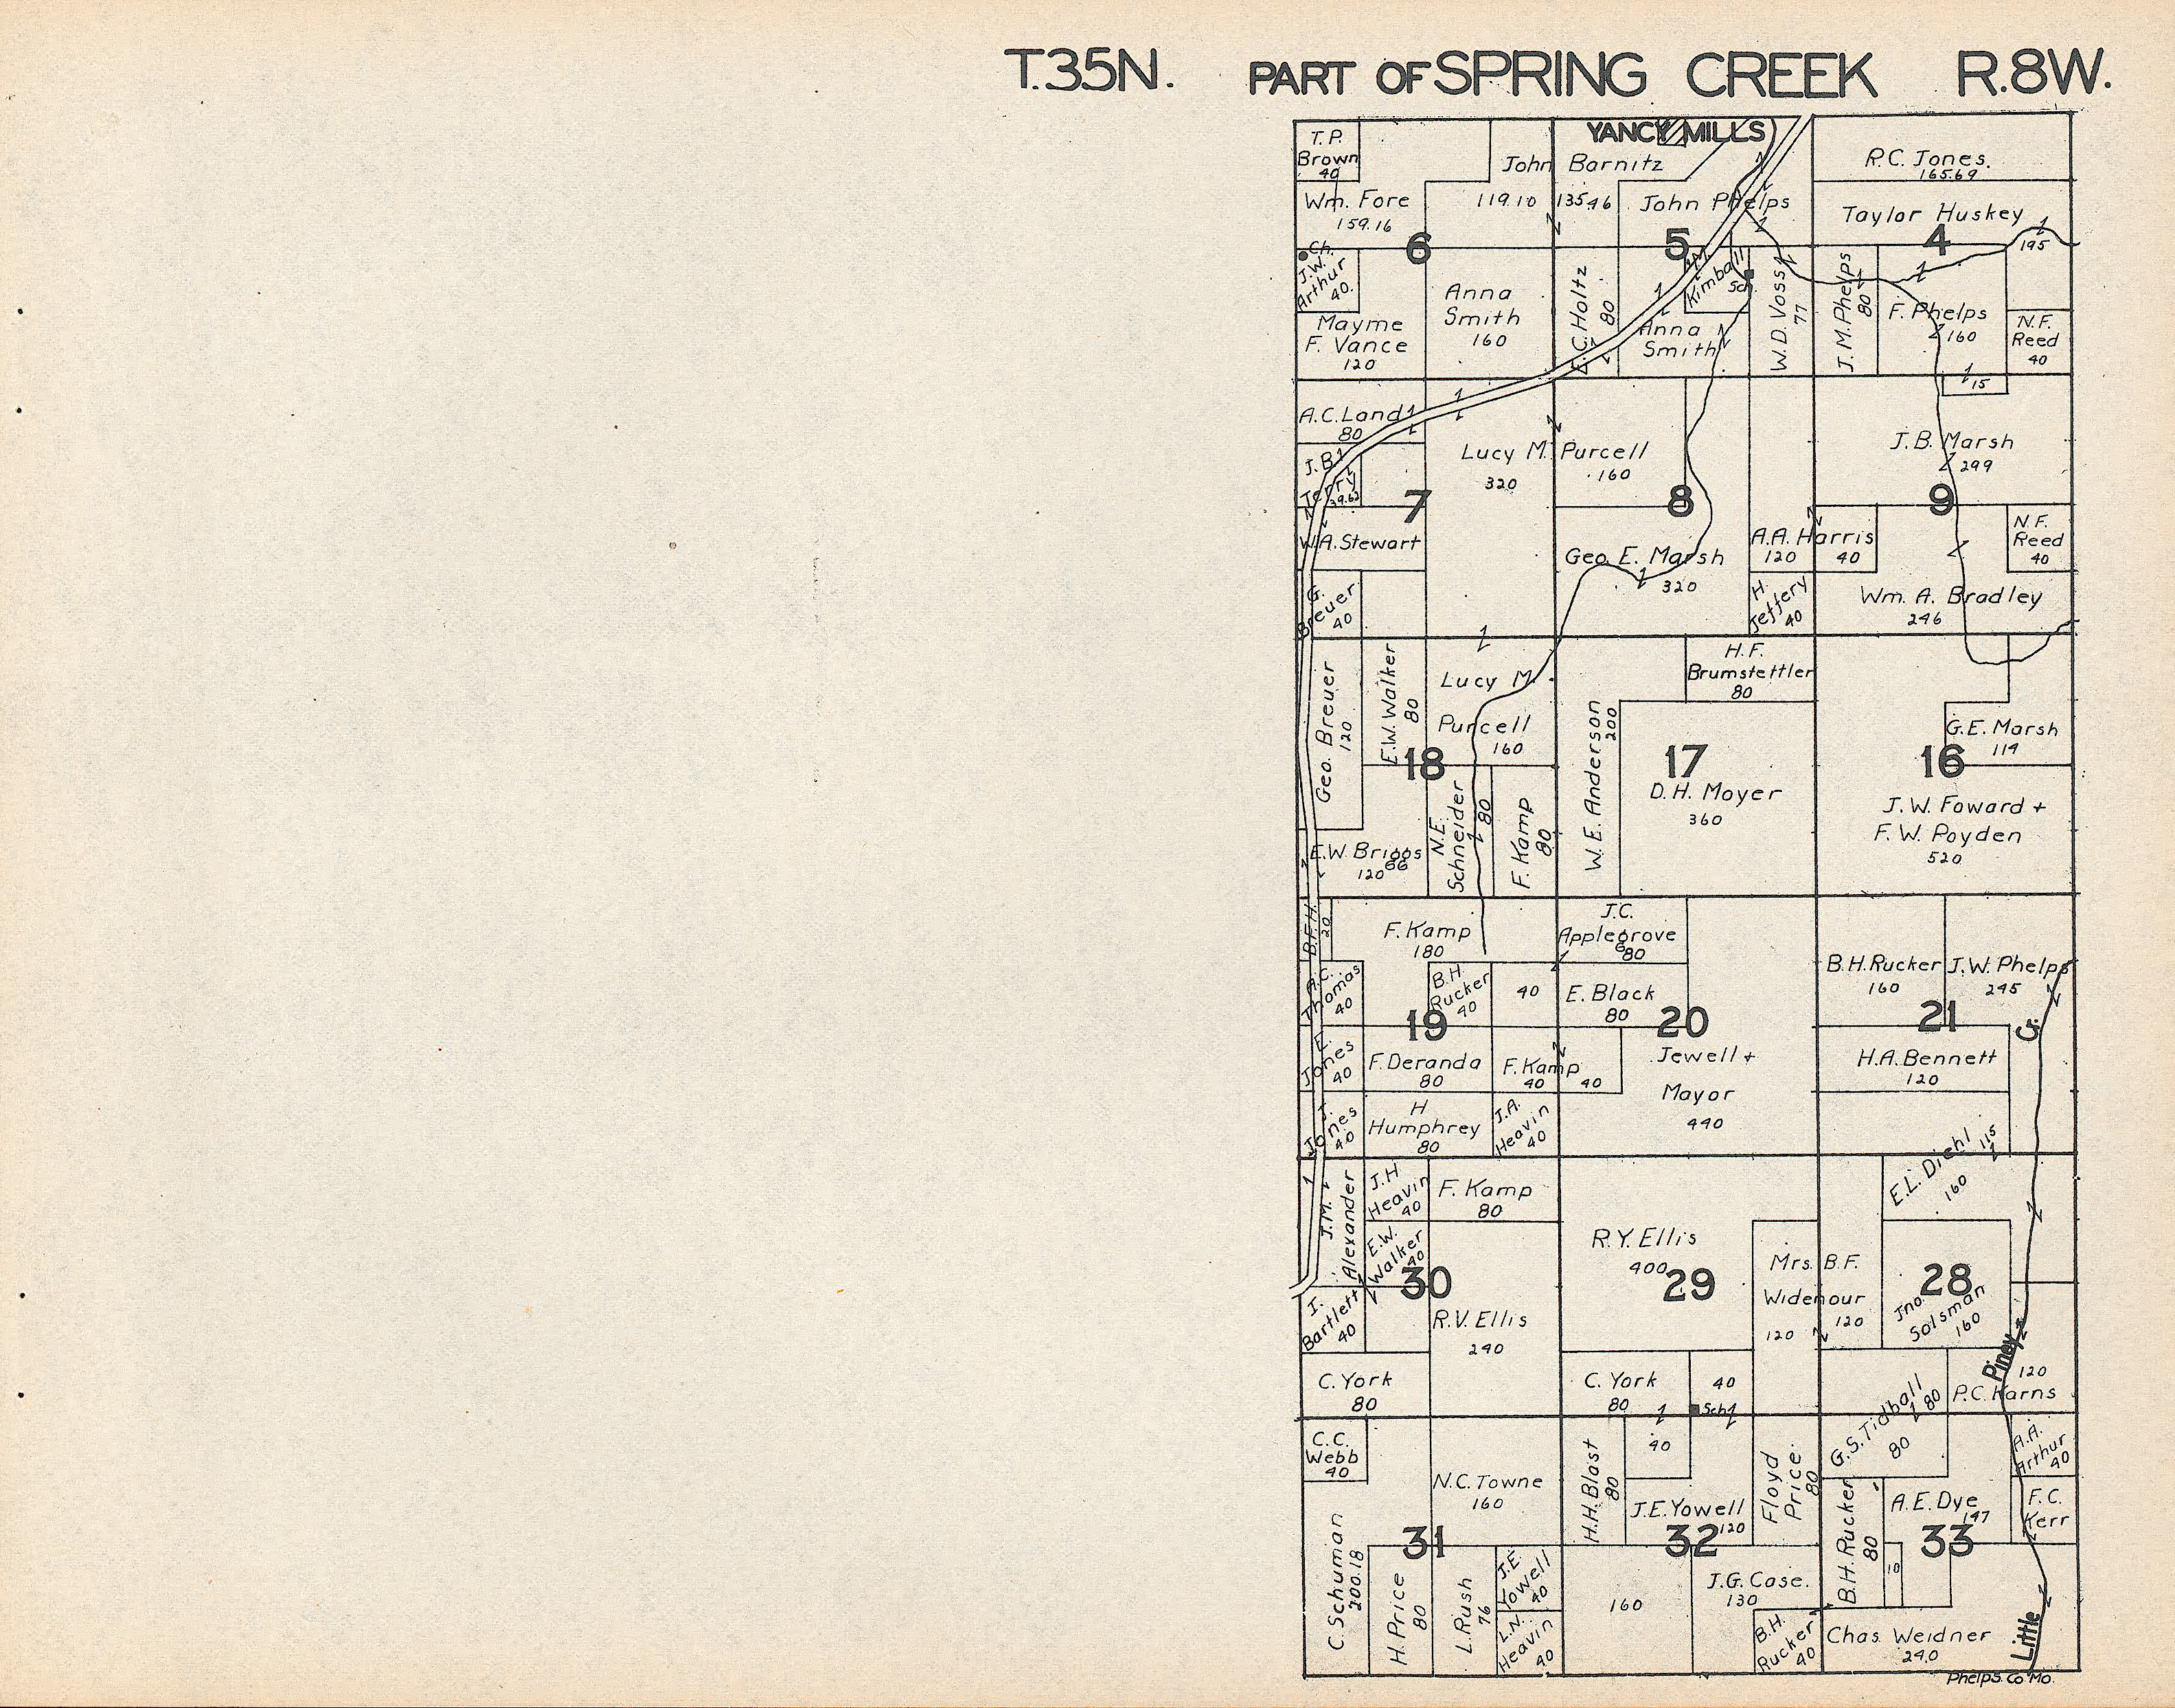 T.35N. PART OF SPRING CREEK R.8W.
YANCY MILLS
T.P.
Brown
40
John Barnitz
119.10 135.46
R.C. Jones.
165.69
Wm. Fore
159.16
John Phelps
Taylor Huskey
195
6
5
4
Ch.
J.W.
Arthur
40.
Mayme
F. Vance
120
Anna
Smith
160
E.C. Holtz
80
Kimball
Sch.
Anna
Smith
W.D. Voss
77
J.M. Phelps
80
F. Phelps
160
N.F.
Reed
40
15
A.C. Land
80
J.B.
Terry
39.62
Lucy M. Purcell
320
160
J.B. Marsh
299
7
8
9
W.A. Stewart
Geo. E. Marsh
320
A.A. Harris
120 40
N.F.
Reed
40
G.
Breuer
40
H.
Jeffery
40
Wm. A. Bradley
246
Geo. Breuer
120
E.W. Walker
80
Lucy M.
Purcell
160
H.F.
Brumstettler
80
W.E. Anderson
200
G.E. Marsh
114
18
17
16
D.H. Moyer
360
J.W. Foward +
F.W. Poyden
520
E.W. Briggs
120 66
N.E.
Schneider
80
F. Kamp
80
B.F.H.
20
F. Kamp
180
J.C.
Applegrove
80
A.C.
Thomas
40
B.H.
Rucker
40
40
E. Black
80
B.H. Rucker
160
J.W. Phelps
245
19
20
21
Cr.
E.
Jones
40
F. Deranda
80
F. Kamp
40 40
Jewell +
Mayor
440
H.A. Bennett
120
J.
Jones
40
H
Humphrey
80
J.A.
Heavin
40
E.L. Diehl
115
160
J.M.
Alexander
J.H
Heavin
40
F. Kamp
80
E.W.
Walker
40
R.Y. Ellis
400
Mrs. B.F.
Widenour
120 120
30
29
28
Jno.
Solsman
160
I.
Bartlett
40
R.V. Ellis
240
Piney
C. York
80
C. York
80
40
Sch
G.S. Tidball
80
80
120
P.C. Karns
C.C.
Webb
40
N.C. Towne
160
H.H. Blast
80
40
J.E. Yowell
120
Floyd
Price
80
A.A.
Arthur
40
B.H. Rucker
80
A.E. Dye
147
F.C.
Kerr
31
32
33
C. Schuman
200.18
H. Price
80
L. Rush
76
J.E.
Yowell
40
L.N.
Heavin
40
160
J.G. Case.
130
10
B.H.
Rucker
40
Chas. Weidner
240
Little
Phelps Co Mo.